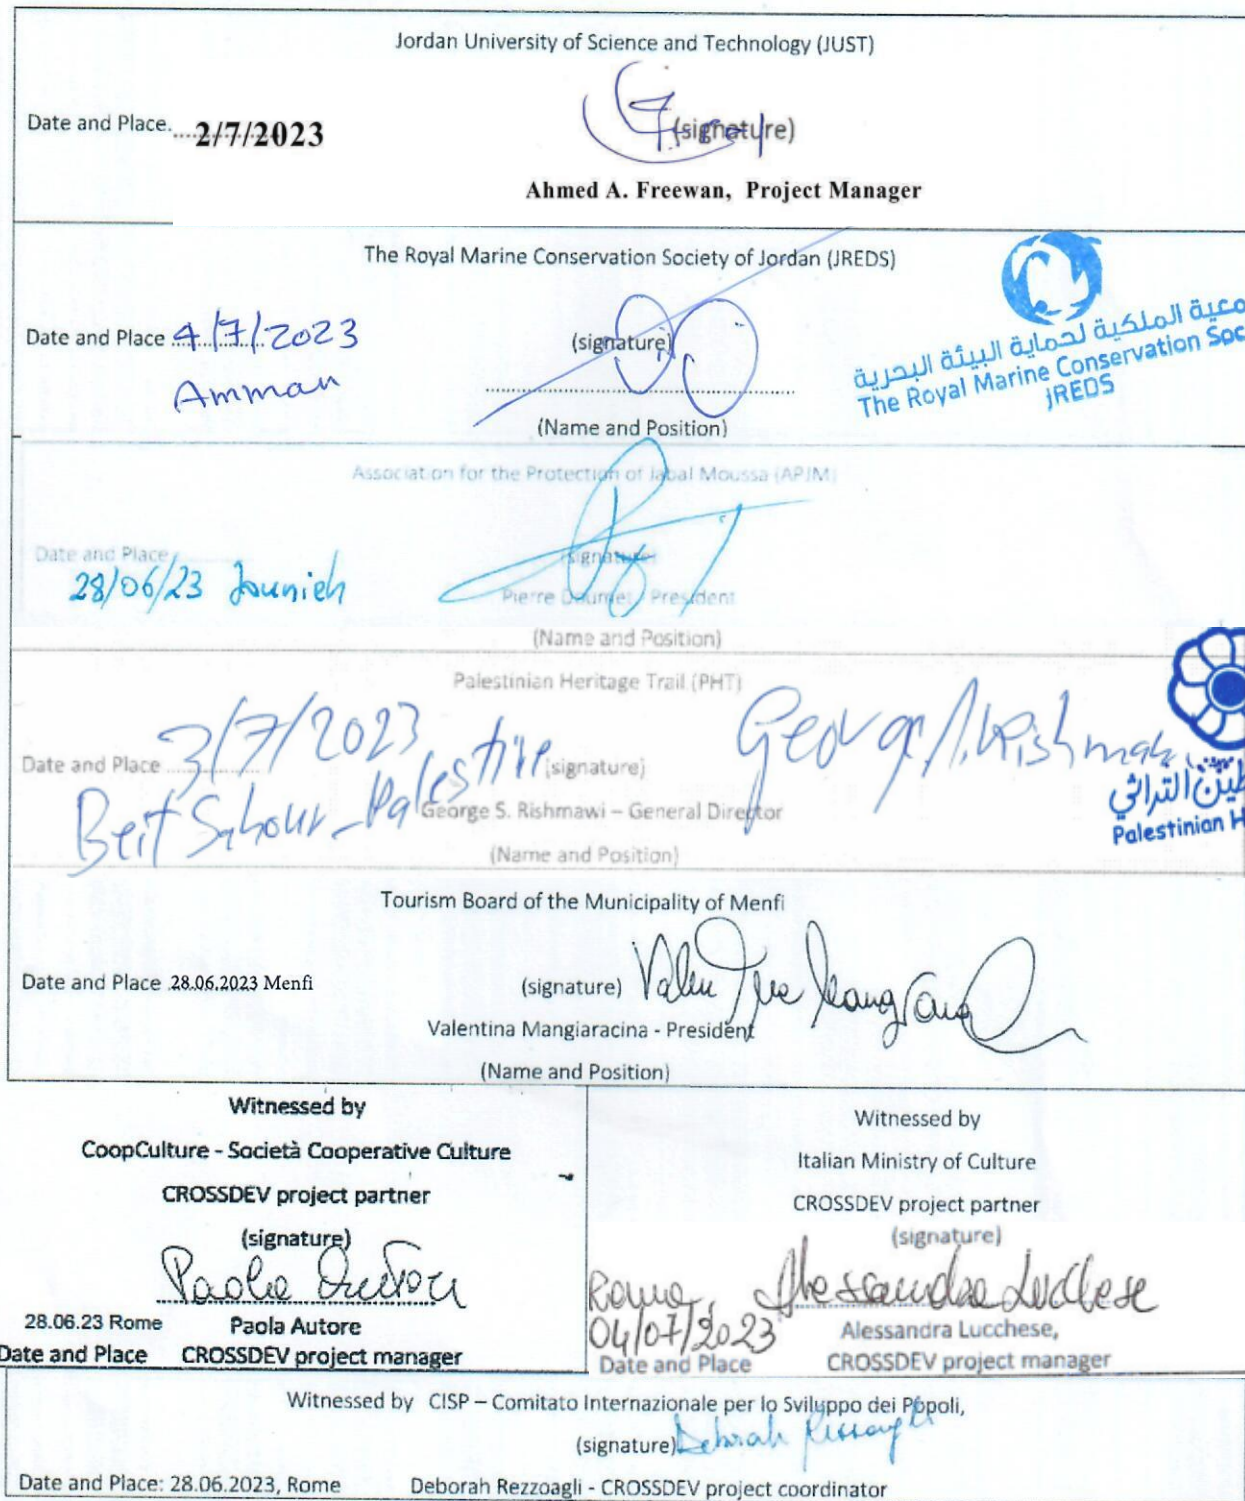 Jordan University of Science and Technology (JUST)
Date and Place. 2/7/2023
(signature)
Ahmed A. Freewan, Project Manager
The Royal Marine Conservation Society of Jordan (JREDS)
Date and Place 4/7/2023
Amman
(signature)
(Name and Position)
الملكية لحماية البيئة البحرية
The Royal Marine Conservation Soc
JREDS
Association for the Protection of Jabal Moussa (APJM)
Date and Place
28/06/23 Jounieh
(signature)
Pierre Doumet - President
(Name and Position)
Palestinian Heritage Trail (PHT)
Date and Place 3/7/2023
Beit Sahour - Palestine
(signature)
George S. Rishmawi – General Director
(Name and Position)
التراثي
Palestinian H
Tourism Board of the Municipality of Menfi
Date and Place 28.06.2023 Menfi
(signature)
Valentina Mangiaracina - President
(Name and Position)
Witnessed by
CoopCulture - Società Cooperative Culture
CROSSDEV project partner
(signature)
Paola Autore
28.06.23 Rome
Paola Autore
Date and Place
CROSSDEV project manager
Witnessed by
Italian Ministry of Culture
CROSSDEV project partner
(signature)
Roma, Alessandra Lucchese
04/07/2023
Alessandra Lucchese,
Date and Place
CROSSDEV project manager
Witnessed by CISP – Comitato Internazionale per lo Sviluppo dei Popoli,
(signature) Deborah Rezzoagli
Date and Place: 28.06.2023, Rome
Deborah Rezzoagli - CROSSDEV project coordinator